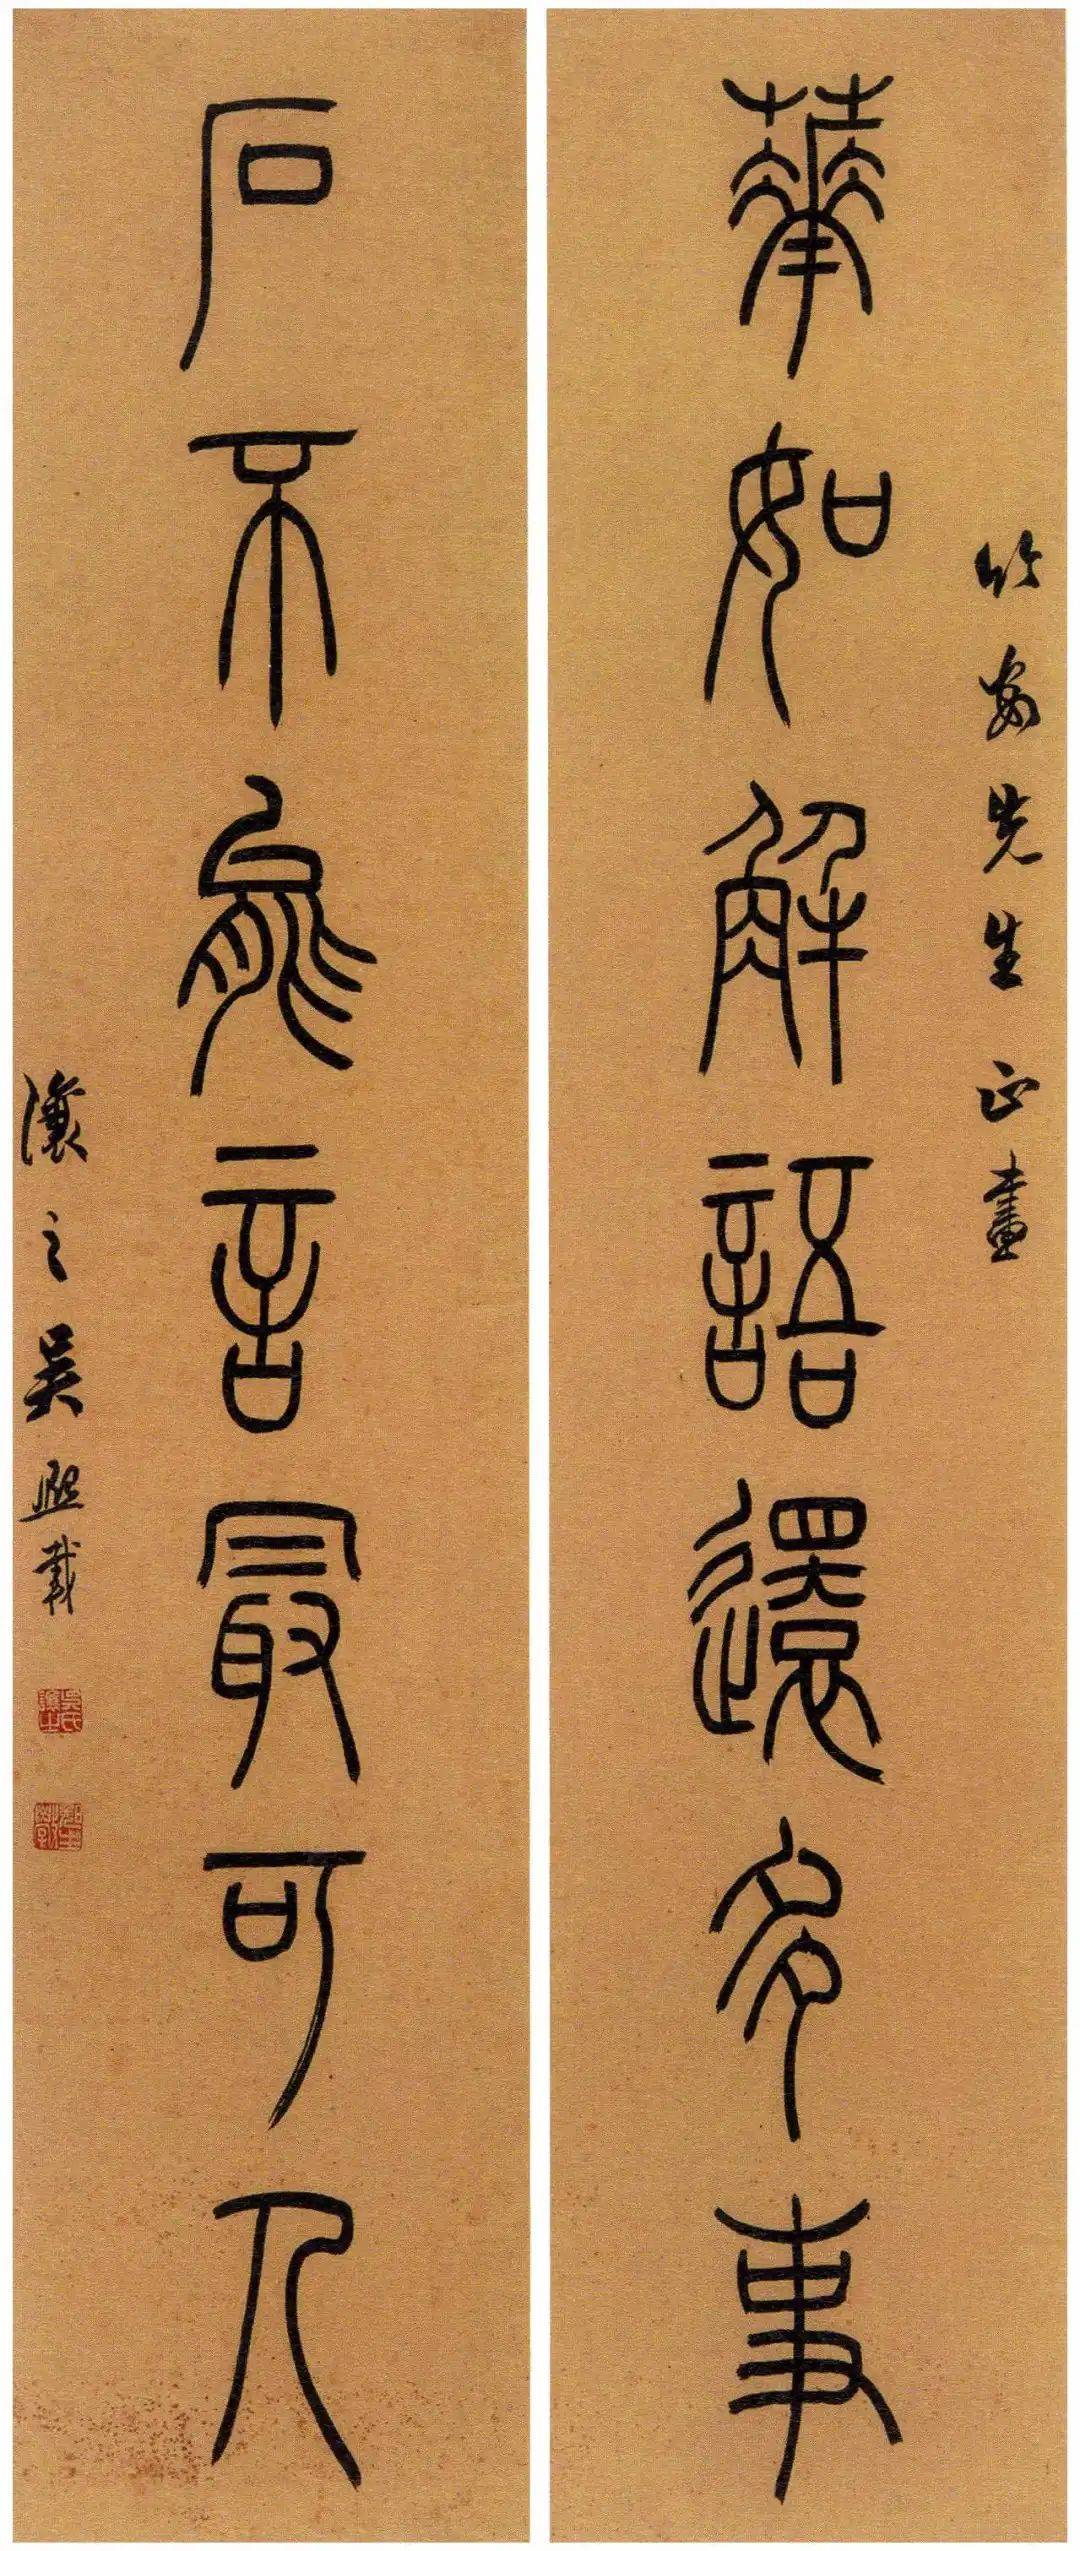 竹安先生正画
華如解語還多事
石不能言最可人
瀼之吳熙載